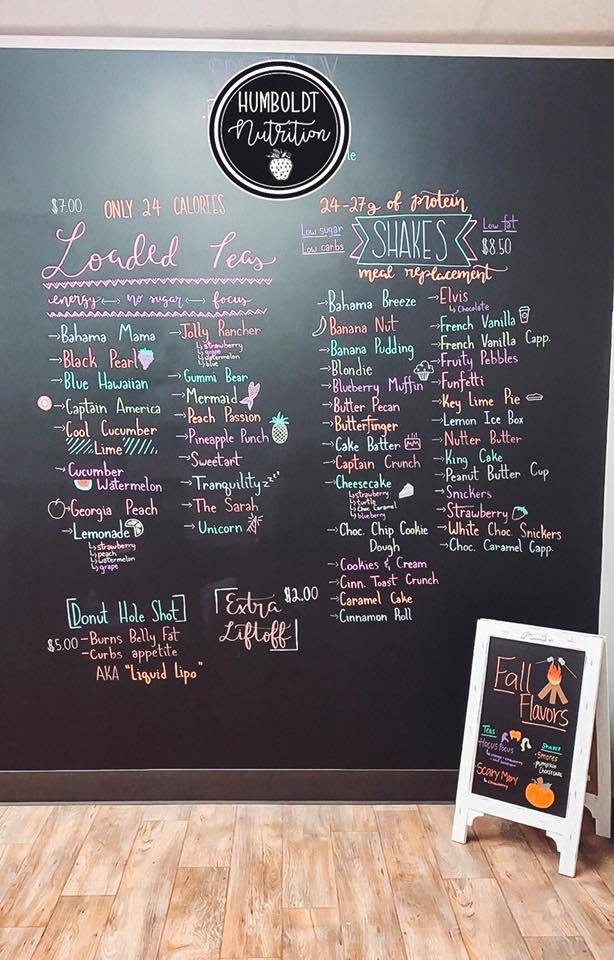 HUMBOLDT
Nutrition
$7.00 ONLY 24 CALORIES
Loaded Teas
energy no sugar focus
→Bahama Mama
→Black Pearl
→Blue Hawaiian
→Captain America
→Cool Cucumber
Lime
→Cucumber
Watermelon
→Georgia Peach
→Lemonade
↳strawberry
↳peach
↳watermelon
↳grape
→Jolly Rancher
↳strawberry
↳grape
↳watermelon
↳blue
→Gummi Bear
→Mermaid
→Peach Passion
→Pineapple Punch
→Sweetart
→Tranquility zzz
→The Sarah
→Unicorn
[Donut Hole Shot]
$5.00 -Burns Belly Fat
-Curbs appetite
AKA "Liquid Lipo"
Extra
Liftoff
$2.00
24-27g of protein
Low sugar
Low carbs
SHAKES
Low fat
$8.50
meal replacement
→Bahama Breeze
→Banana Nut
→Banana Pudding
→Blondie
→Blueberry Muffin
→Butter Pecan
→Butterfinger
→Cake Batter
→Captain Crunch
→Cheesecake
↳strawberry
↳turtle
↳Choc Caramel
↳blueberry
→Choc. Chip Cookie
Dough
→Cookies & Cream
→Cinn. Toast Crunch
→Caramel Cake
→Cinnamon Roll
→Elvis
↳Chocolate
→French Vanilla
→French Vanilla Capp.
→Fruity Pebbles
→Funfetti
→Key Lime Pie
→Lemon Ice Box
→Nutter Butter
→King Cake
→Peanut Butter Cup
→Snickers
→Strawberry
→White Choc Snickers
→Choc. Caramel Capp.
Fall
Flavors
Teas:
Hocus Pocus
Scary Mary
Shakes
-S'mores
-pumpkin
Cheesecake